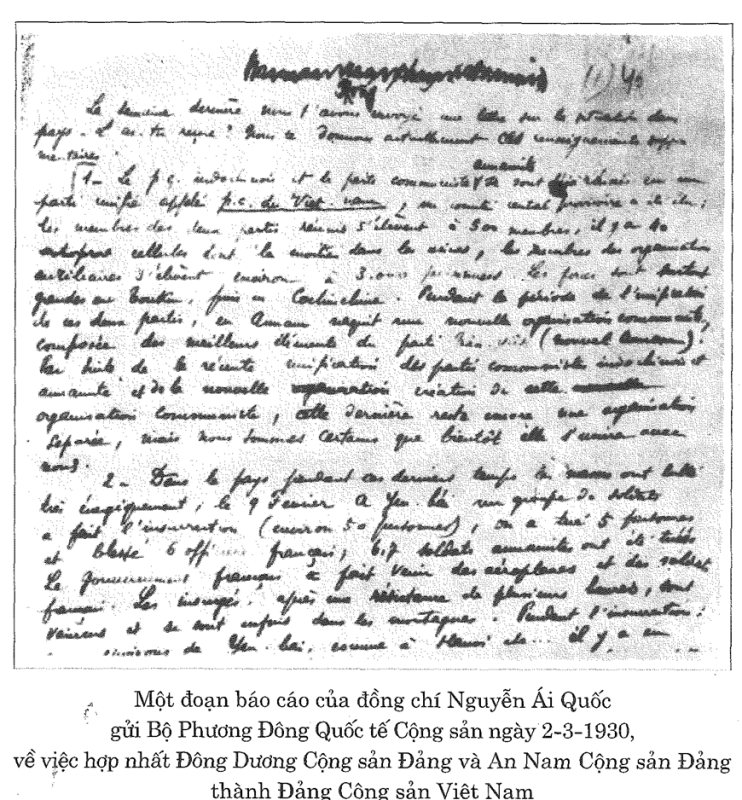 La semaine dernière nous t'avons envoyé une lettre sur la situation dans
pays. L'as-tu reçue? Nous te donnons actuellement des renseignements supplé
mentaires.
annamite
1- Le p.c. indochinois et le parti communiste sont en un
parti unifié appelé p.c. du Viet-nam, un comité central provisoire a été élu;
les membres des deux partis réunis s'élèvent à 500 membres, il y a 40
cellules dont la moitié dans les usines, les membres des organisations
auxiliaires s'élèvent environ à 3.000. Les forces sont surtout
grandes au Tonkin, puis en Cochinchine. Pendant la période de l'unification
de ces deux partis, en Annam naquit une nouvelle organisation communiste,
composée des meilleurs éléments du parti (nouvel Annam).
Par suite de la récente unification des partis communiste indochinois et
annamite et de la nouvelle création de cette
organisation communiste, cette dernière reste encore une organisation
séparée, mais nous sommes certains que bientôt elle s'unira avec
nous.
2- Dans le pays pendant ces derniers temps les ont lutté
très énergiquement; le 9 Février à Yen-bai un groupe de soldats
a fait l'insurrection (environ 50 personnes), on a tué 5 personnes
et blessé 6 officiers français; 6,7 soldats annamites ont été tués
Le gouvernement français a fait venir des aéroplanes et des soldats
français. Les insurgés, après une résistance de plusieurs heures, sont
vaincus et se sont enfuis dans les montagnes. Pendant l'insurrection
de Yen-bai, comme à Hanoi etc... il y a eu
Một đoạn báo cáo của đồng chí Nguyễn Ái Quốc
gửi Bộ Phương Đông Quốc tế Cộng sản ngày 2-3-1930,
về việc hợp nhất Đông Dương Cộng sản Đảng và An Nam Cộng sản Đảng
thành Đảng Cộng sản Việt Nam